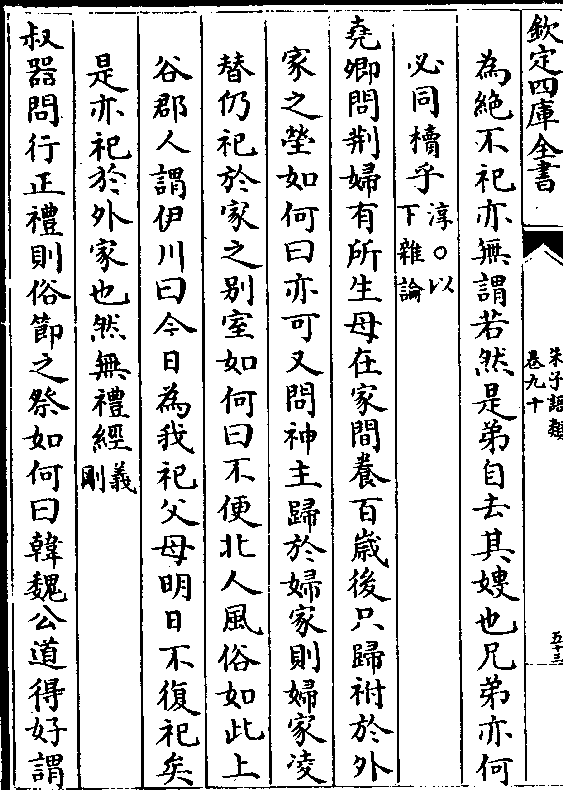 欽定四庫全書
朱子語類
卷九十
五十三
為絶不祀亦無謂若然是弟自去其嫂也兄弟亦何
必同櫝乎淳○以下雜論
堯卿問荆婦有所生母在家間養百歲後只歸祔於外
家之塋如何曰亦可又問神主歸於婦家則婦家凌
替仍祀於家之别室如何曰不便北人風俗如此上
谷郡人謂伊川曰今日為我祀父母明日不復祀矣
是亦祀於外家也然無禮經義剛
叔器問行正禮則俗節之祭如何曰韓魏公道得好謂